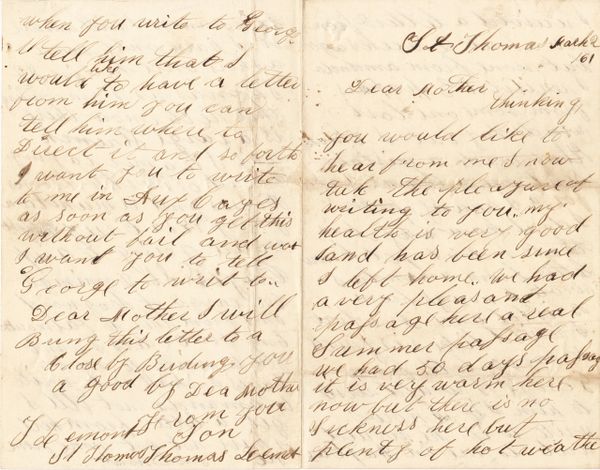 St Thomas March 2
/61
Dear Mother
thinking
you would like to
hear from me I now
tak the pleasure of
writing to you. my
health is very good
and has been since
I left home. we had
a very pleasant
passage here a real
Summer passage
we had 50 days passag
it is very warm here
now but there is no
Sickness here but
plenty of hot weathe
when you write to George
tell him that I
would like to have a letter
from him you can
tell him where to
Direct it and so forth
I want you to write
to me in Aux Cayes
as soon as you get this
without fail and
I want you to tell
George to writ to..
Dear Mother I will
Bring this letter to a
Close by Biding you
a good by Dea Mother
From you
Son
St Thomas Thomas